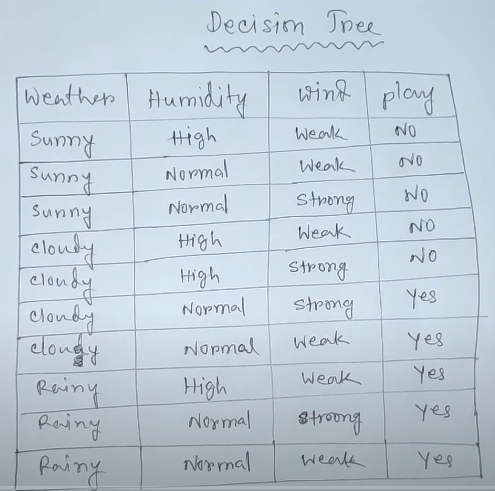 Decision Tree
Weather Humidity Wind play
Sunny High Weak NO
Sunny Normal Weak NO
Sunny Normal Strong NO
Cloudy High Weak NO
Cloudy High Strong NO
Cloudy Normal Strong Yes
Cloudy Normal Weak Yes
Rainy High Weak Yes
Rainy Normal Stroong Yes
Rainy Normal Weak Yes